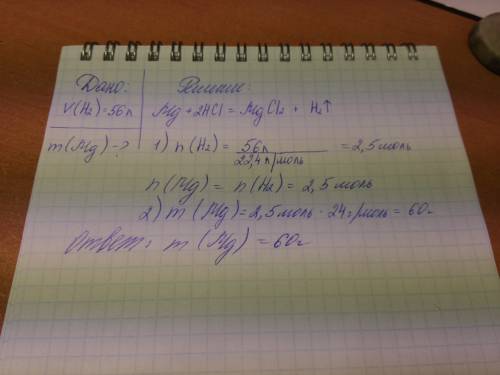 Дано: Решение:
V(H₂)=56л Mg + 2HCl = MgCl₂ + H₂↑
m(Mg)-? 1) n(H₂) = 56л / 22,4 л/моль = 2,5 моль
n(Mg) = n(H₂) = 2,5 моль
2) m(Mg)=2,5 моль · 24г/моль = 60г
Ответ: m(Mg) = 60г